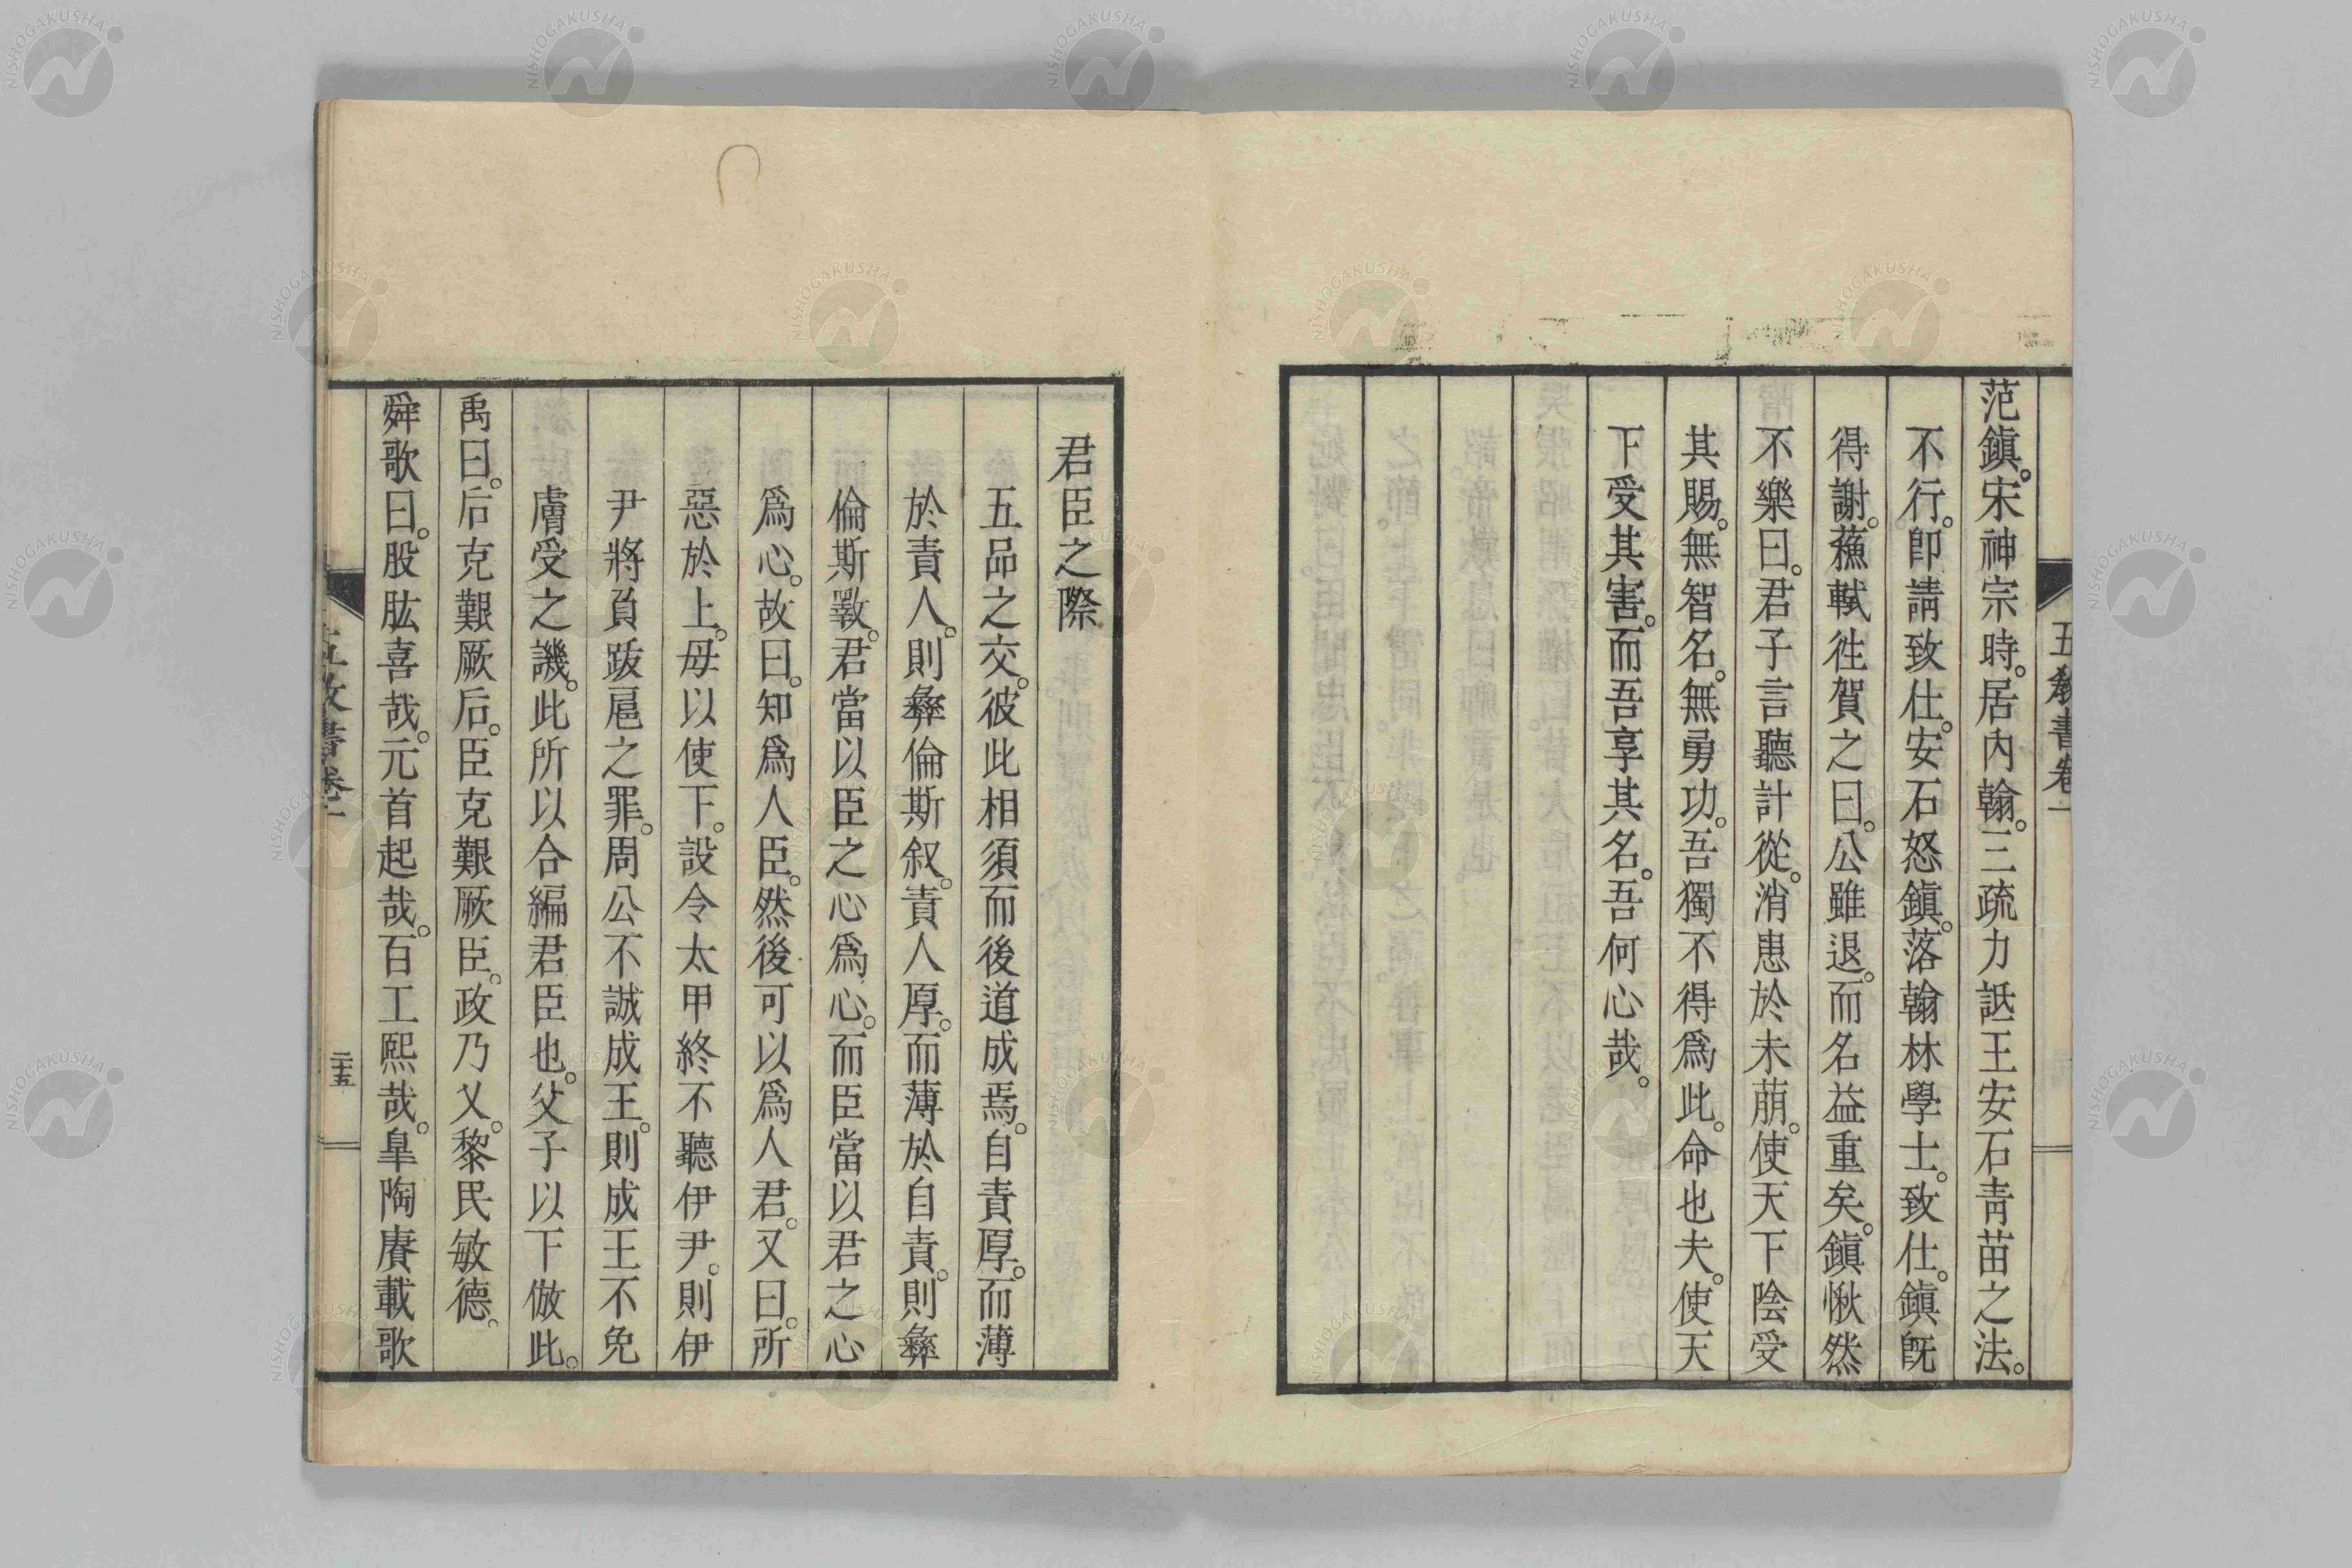 五教書卷一
范鎭。宋神宗時。居內翰。三疏力詆王安石靑苗之法。
不行。卽請致仕。安石怒鎭。落翰林學士。致仕。鎭旣
得謝。蘓軾徃賀之曰。公雖退。而名益重矣。鎭愀然
不樂曰。君子言聽計從。消患於未萠。使天下陰受
其賜。無智名。無勇功。吾獨不得爲此。命也夫。使天
下受其害。而吾享其名。吾何心哉。
君臣之際
五品之交。彼此相須而後道成焉。自責厚。而薄
於責人。則彜倫斯叙。責人厚。而薄於自責。則彜
倫斯斁。君當以臣之心爲心。而臣當以君之心
爲心。故曰。知爲人臣。然後可以爲人君。又曰。所
惡於上。毋以使下。設令太甲終不聽伊尹。則伊
尹將負跋扈之罪。周公不誠成王。則成王不免
膚受之譏。此所以合編君臣也。父子以下倣此。
禹曰。后克艱厥后。臣克艱厥臣。政乃乂。黎民敏德。
舜歌曰。股肱喜哉。元首起哉。百工熙哉。臯陶賡載歌
五教書卷一
二十五
NISHOGAKUSHA